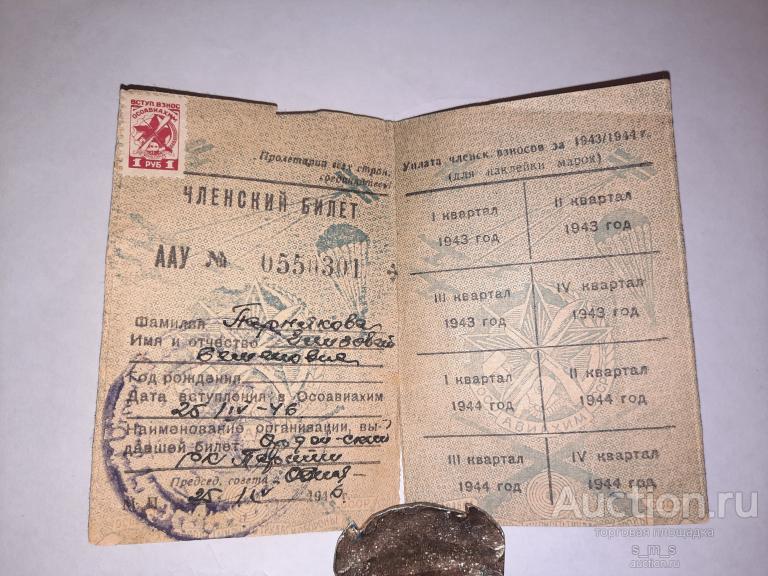 ВСТУП. ВЗНОС
ОСОАВИАХИМ
1 РУБ 1
Пролетарии всех стран,
соединяйтесь!
ЧЛЕНСКИЙ БИЛЕТ
ААУ № 0550301
Фамилия
Имя и отчество
Год рождения
Дата вступления в Осоавиахим
25/IV-46
Наименование организации, вы-
давшей билет:
РК Партии
Председ. совета
25/IV 1946
Уплата членск. взносов за 1943/1944 г.
(для наклейки марок)
I квартал
1943 год
II квартал
1943 год
III квартал
1943 год
IV квартал
1943 год
I квартал
1944 год
II квартал
1944 год
III квартал
1944 год
IV квартал
1944 год
ОСОАВИАХИМ
Auction.ru
торговая площадка
s_m_s
auction.ru